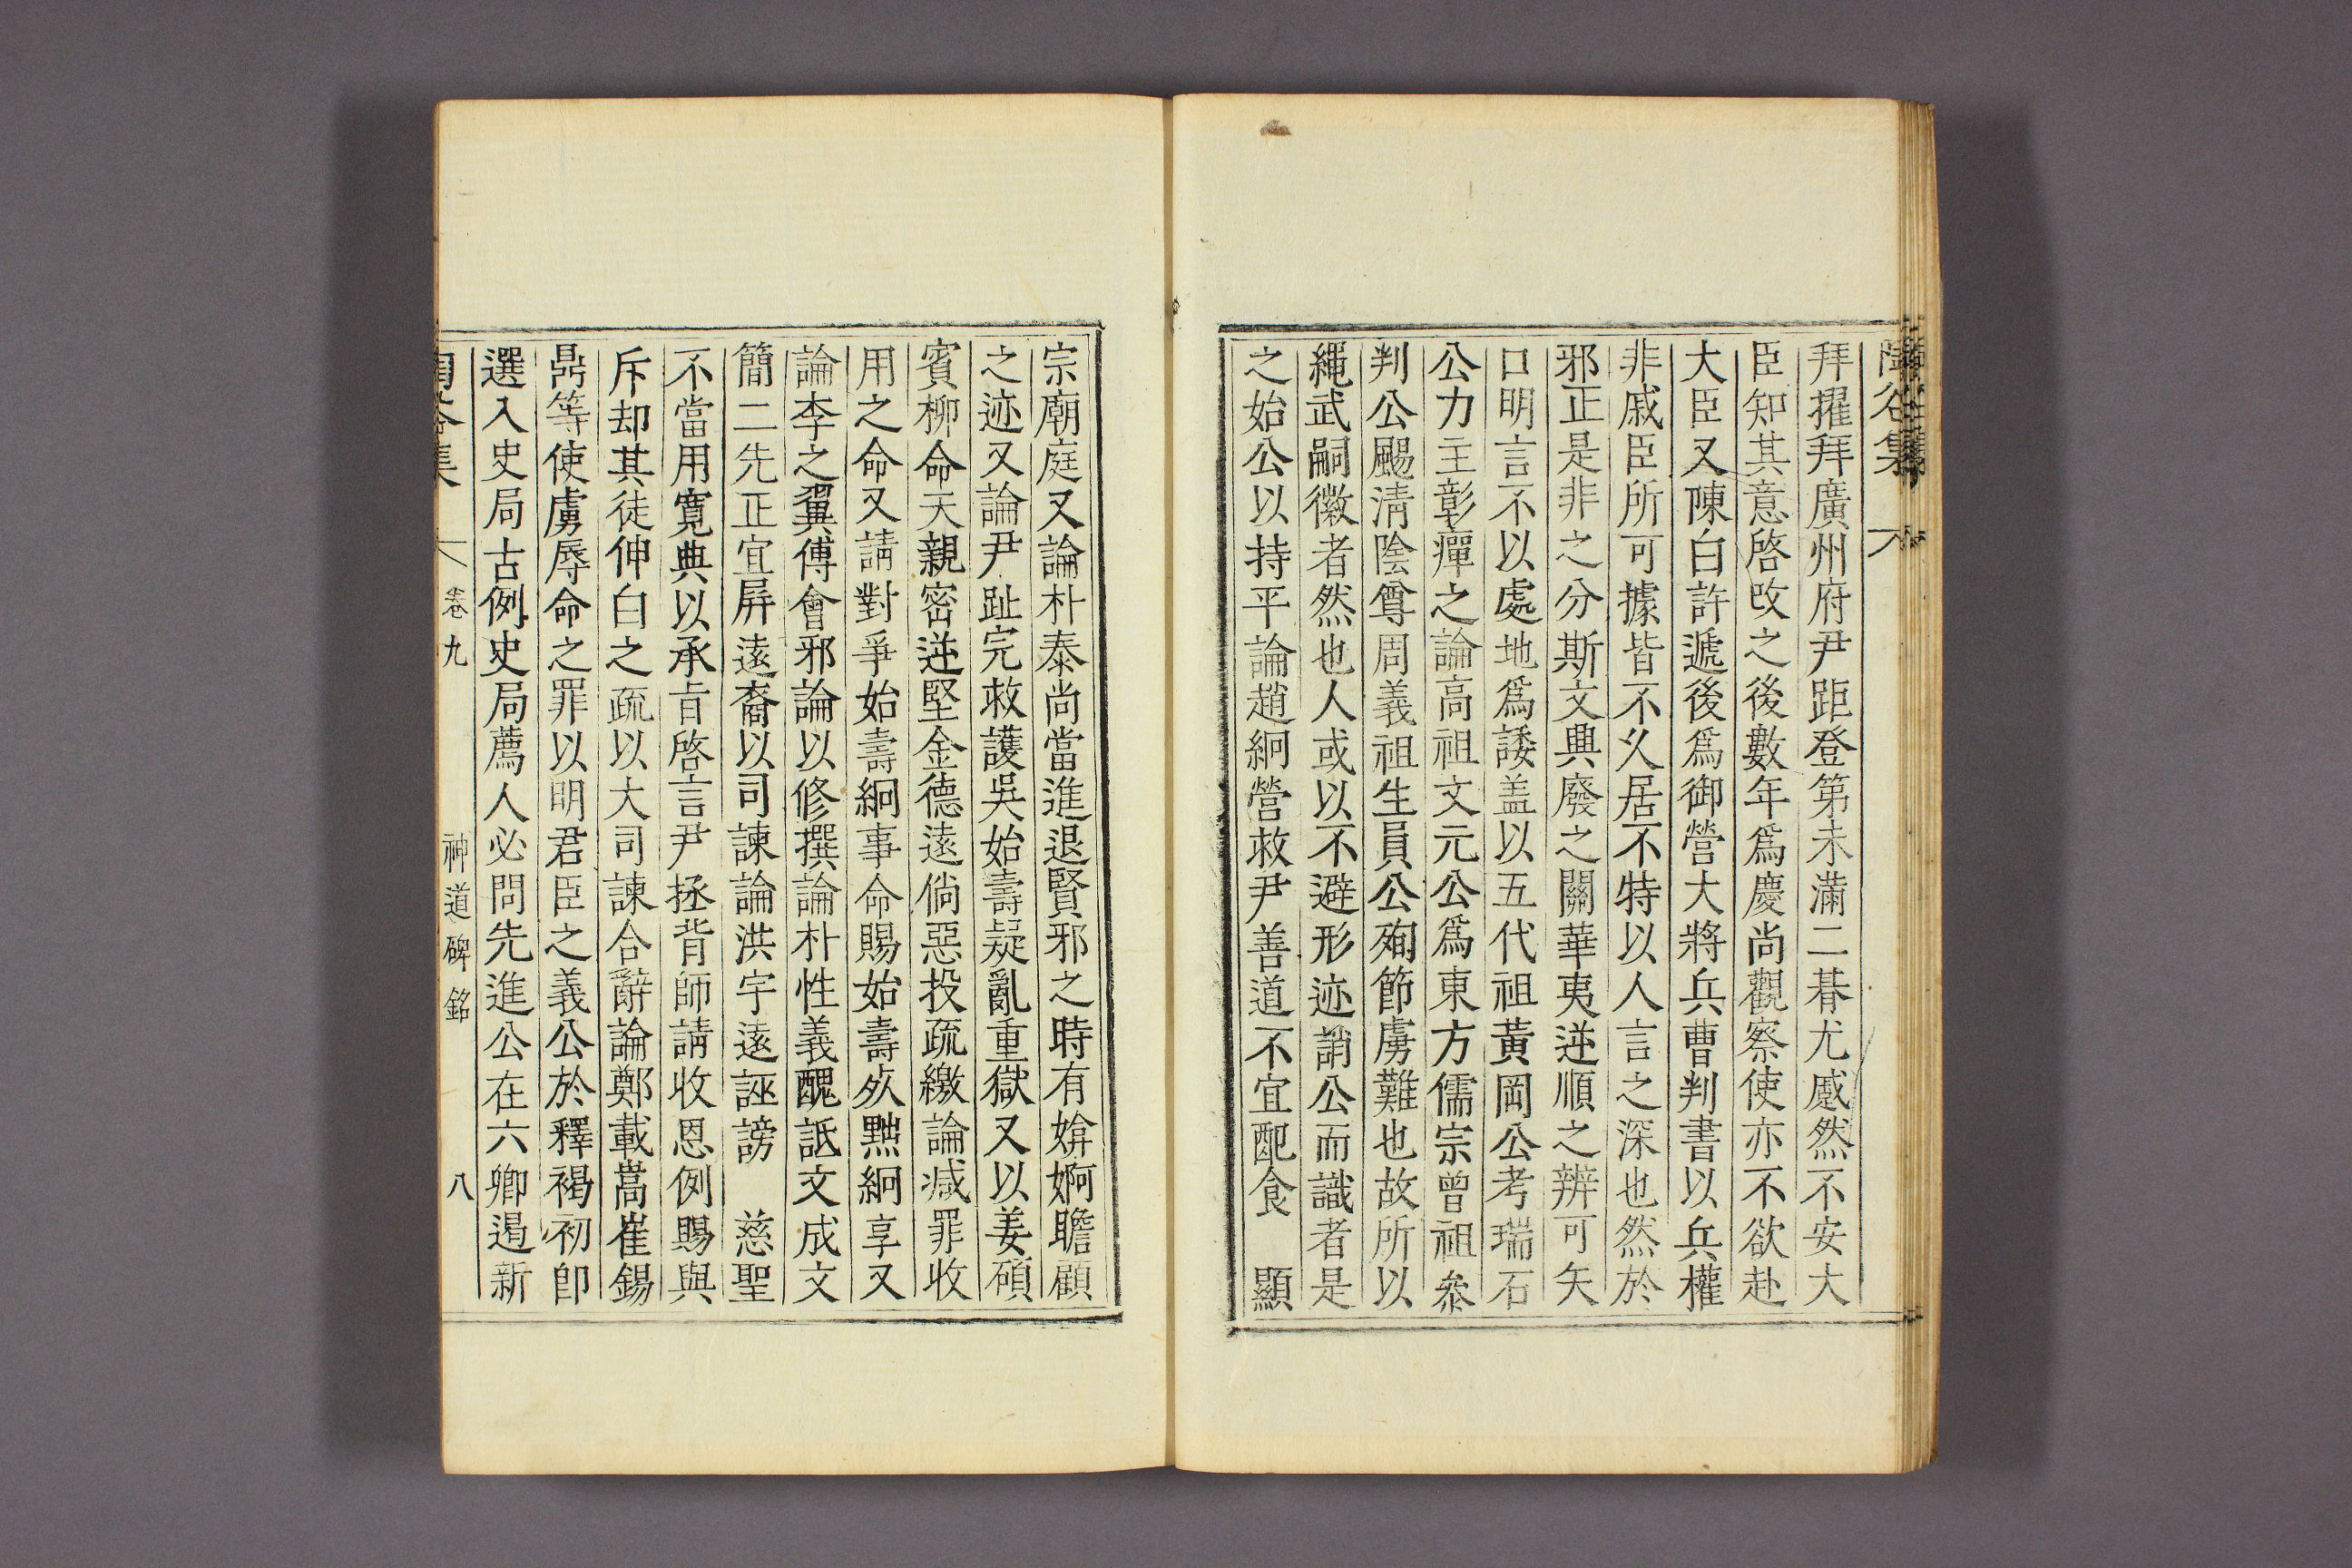 陶谷集
拜擢拜廣州府尹距登第未滿二朞尤慼然不安大
臣知其意啓改之後數年爲慶尚觀察使亦不欲赴
大臣又陳白許遞後爲御營大將兵曹判書以兵權
非戚臣所可據皆不久居不特以人言之深也然於
邪正是非之分斯文興廢之關華夷逆順之辨可矢
口明言不以處地爲諉盖以五代祖黃岡公考瑞石
公力主彰癉之論高祖文元公爲東方儒宗曾祖叅
判公颺淸陰尊周義祖生員公殉節虜難也故所以
繩武嗣徽者然也人或以不避形迹誚公而識者是
之始公以持平論趙絅營救尹善道不宜配食 顯
宗廟庭又論朴泰尚當進退賢邪之時有媕婀瞻顧
之迹又論尹趾完救護吳始壽疑亂重獄又以姜碩
賓柳命天親密逆堅金德遠倘惡投疏繳論減罪收
用之命又請對爭始壽絅事命賜始壽死黜絅享又
論李之翼傅會邪論以修撰論朴性義醜詆文成文
簡二先正宜屛遠裔以司諫論洪宇遠誣謗 慈聖
不當用寬典以承旨啓言尹拯背師請收恩例賜與
斥却其徒伸白之疏以大司諫合辭論鄭載嵩崔錫
鼎等使虜辱命之罪以明君臣之義公於釋褐初卽
選入史局古例史局薦人必問先進公在六卿遏新
卷九 神道碑銘 八